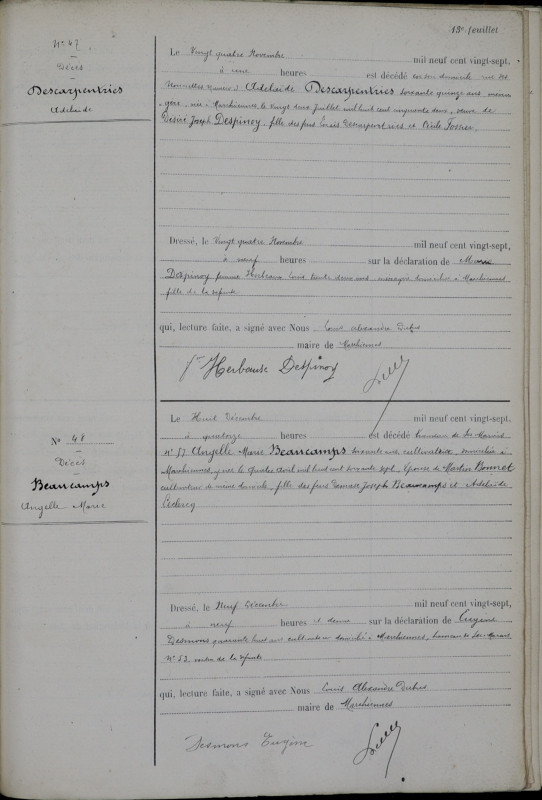 13e feuillet
No 47
Décès
Descarpentries
Adelaïde
Le Vingt quatre Novembre mil neuf cent vingt-sept,
à une heures est décédé en son domicile rue des
Adelaïde Descarpentries soixante quinze ans
née à Marchiennes le vingt deux Juillet mil huit cent cinquante deux, veuve de
Désiré Joseph Despinoy, fille des feus Louis Descarpentries et Cécile
Dressé, le Vingt quatre Novembre mil neuf cent vingt-sept,
à neuf heures sur la déclaration de Marie
Despinoy femme Herbaux Louis trente deux ans ménagère domiciliée à Marchiennes
fille de la défunte
qui, lecture faite, a signé avec Nous Louis Alexandre
maire de Marchiennes
Despinoy
No 48
Décès
Beaucamps
Angelle Marie
Le Huit Décembre mil neuf cent vingt-sept,
à quatorze heures est décédé hameau de
No 57 Angelle Marie Beaucamps soixante ans cultivatrice, domiciliée à
Marchiennes, née le Quatre Avril mil huit cent soixante sept, épouse de Martin Bonnet
cultivateur de même domicile, fille des feus Joseph Beaucamps et Adelaïde
Leclercq
Dressé, le Neuf Décembre mil neuf cent vingt-sept,
à neuf heures et demie sur la déclaration de Eugène
Desmons quarante huit ans cultivateur domicilié à Marchiennes, hameau de
No 53, de la défunte
qui, lecture faite, a signé avec Nous Louis Alexandre
maire de Marchiennes
Desmons Eugène